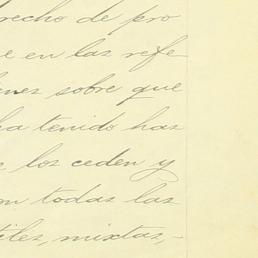 recho de pro
e en las refe
ienes sobre que
ha tenido has
e los ceden y
on todas las
tiles, mixtas,-